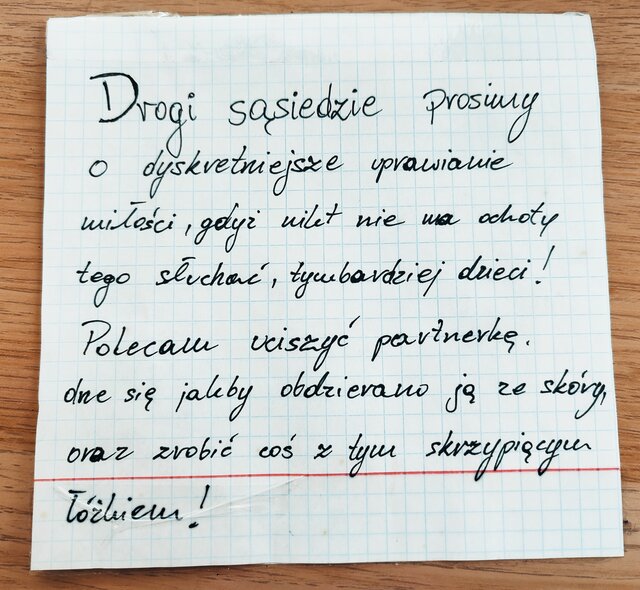 Drogi sąsiedzie prosimy
o dyskretniejsze uprawianie
miłości, gdyż nikt nie ma ochoty
tego słuchać, tymbardziej dzieci!
Polecam uciszyć partnerkę.
dne się jakby obdzierano ją ze skóry,
oraz zrobić coś z tym skrzypiącym
łóżkiem!